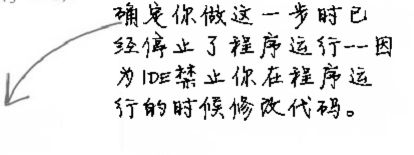 确定你做这一步时已
经停止了程序运行--因
为IDE禁止你在程序运
行的时候修改代码。